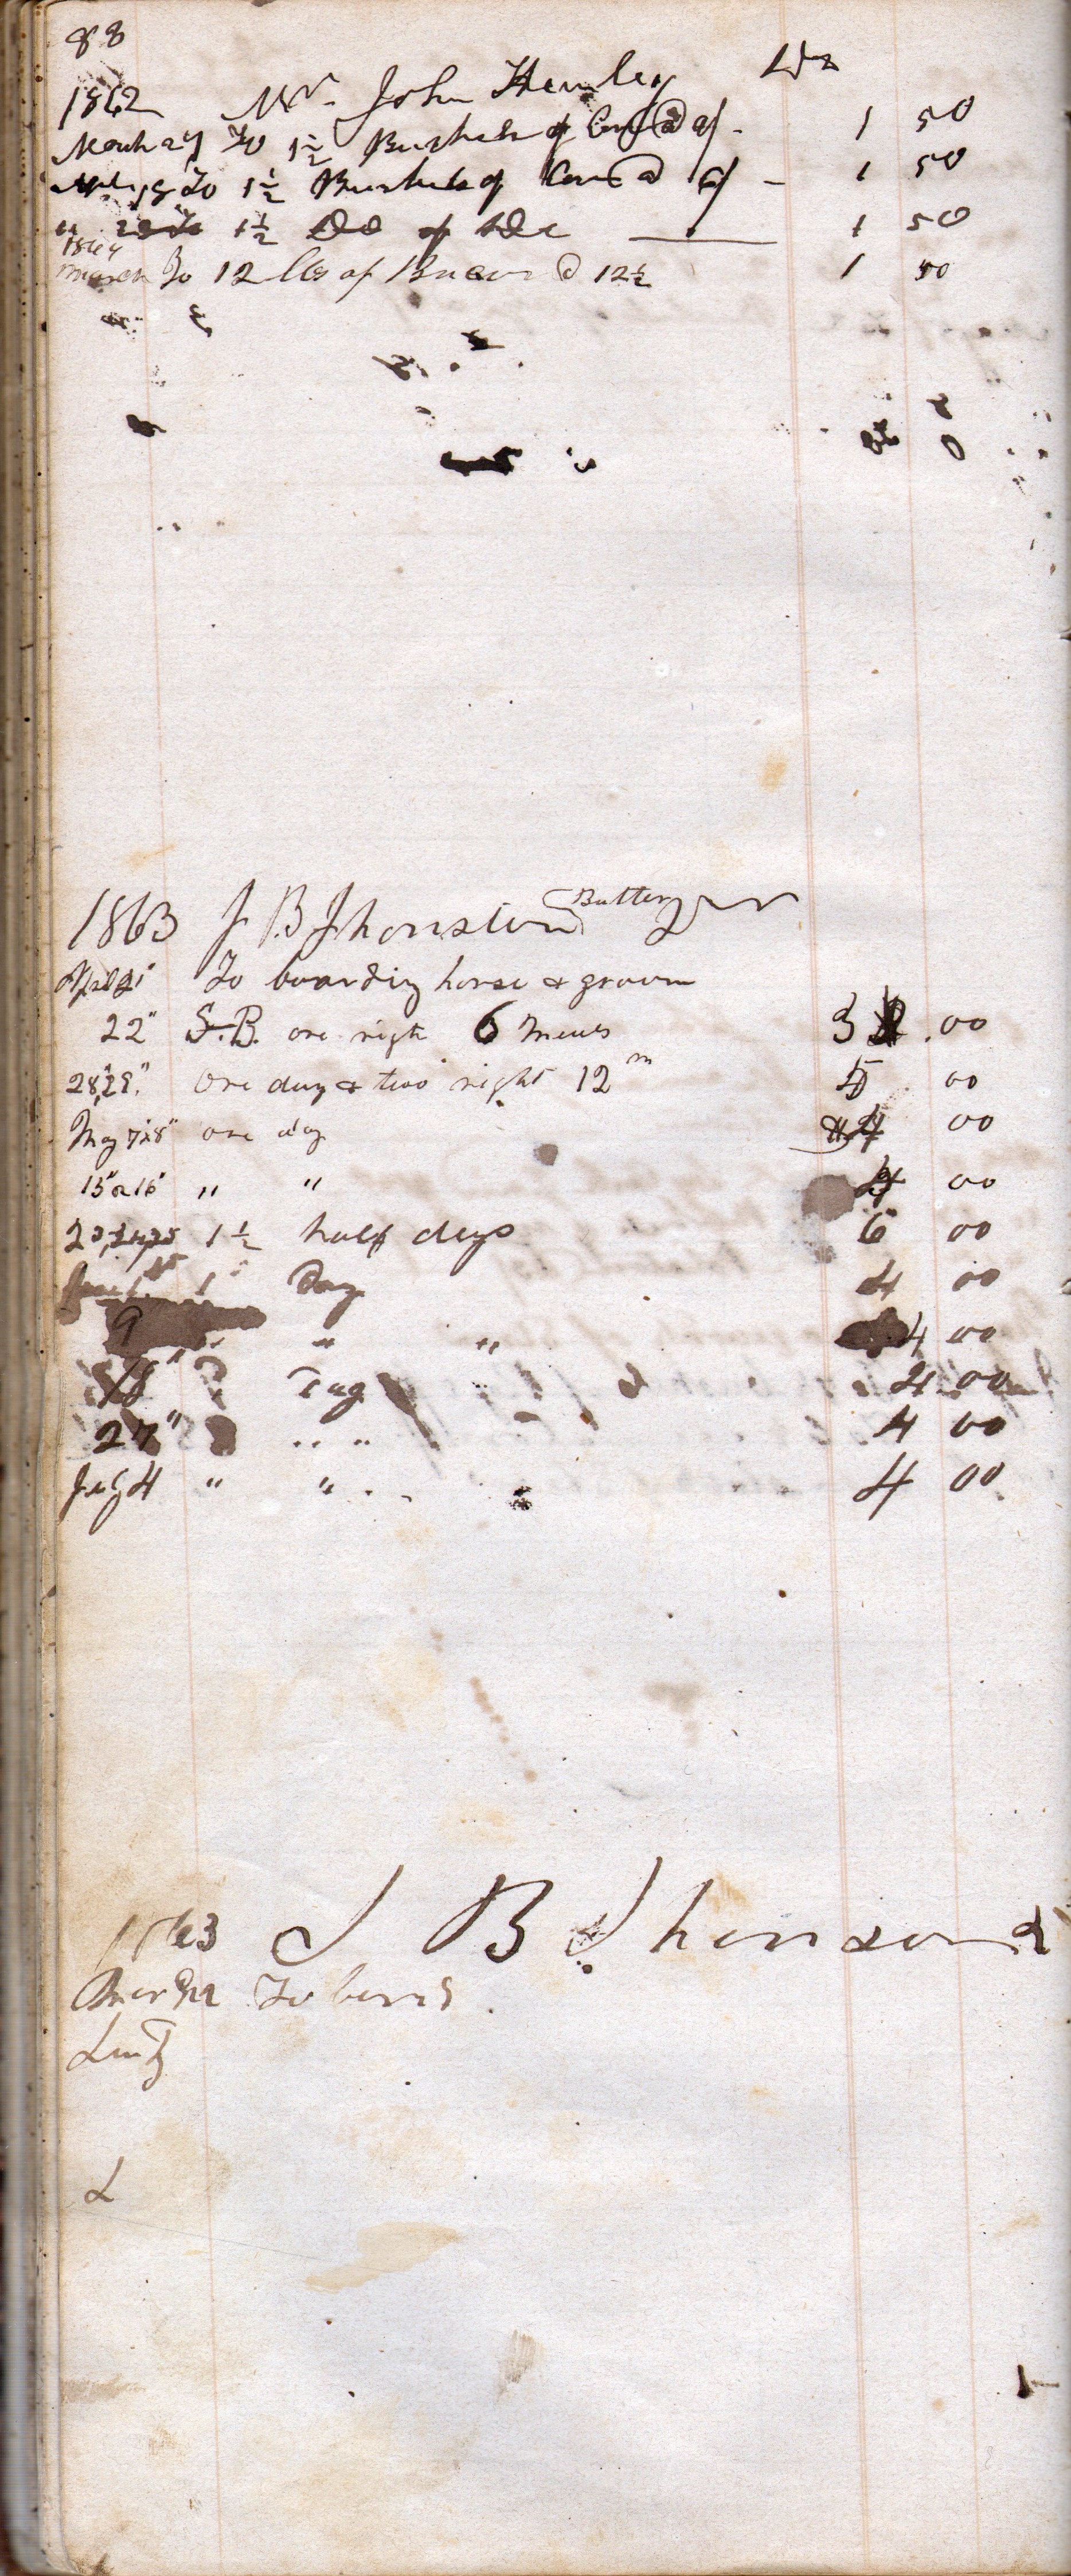 88
1862 Mr. John Henley Dr
March 29 To 1½ Bushels of Corn @ 6/- 1 50
Apl. 18 To 1½ Bushels of Corn @ 6/- 1 50
" 1½ Do of Do 1 50
1864
March To 12 lbs of Bacon @ 12½ 1 50
1863 J B Jhonston Battery Dr
April 21" To boarding horse & groom
22" S.B. one nigh 6 meals 3 .00
28",29" one day & two night 12 m 5 00
May 7&8" one day 4 00
15" & 16" " " 4 00
23,24,25 1½ half days 6 00
June 1st 1 Day 4 00
9 " " 4 00
18" Day 4.00
27" " " 4 00
July 4 " " 4 00
1863 J B Jhonson
To
L